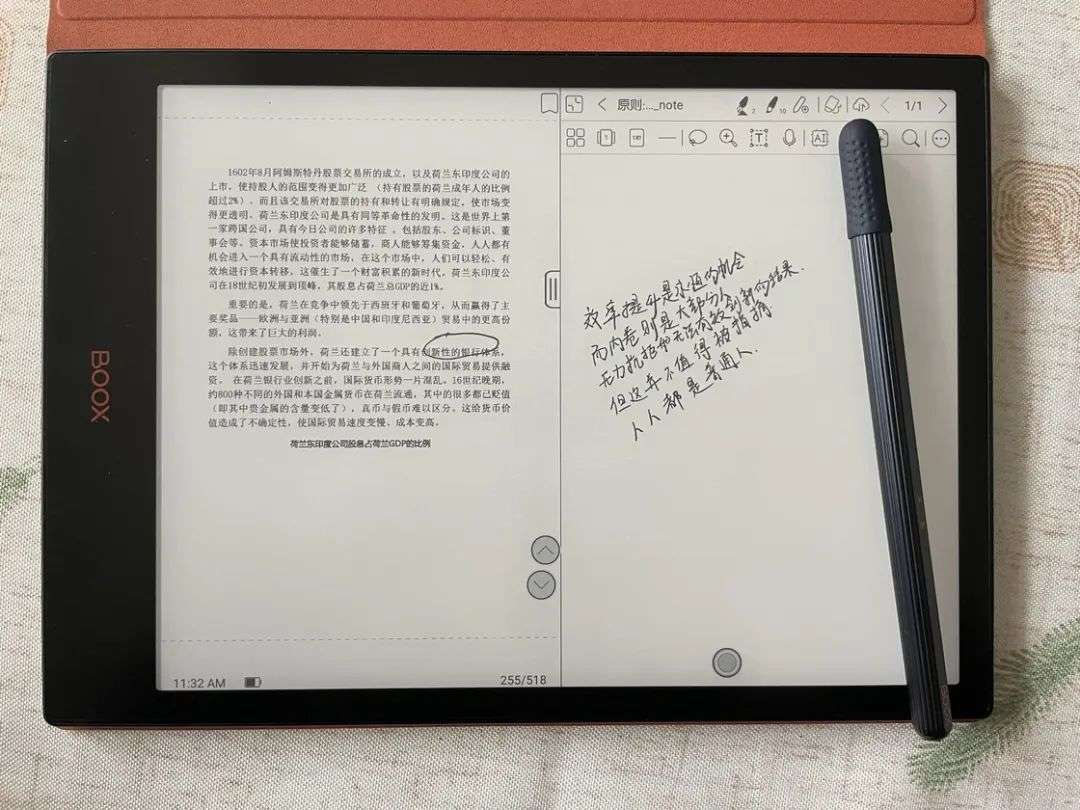 BOOX
1602年8月阿姆斯特丹股票交易所的成立，以及荷兰东印度公司的
上市，使持股人的范围变得更加广泛（持有股票的荷兰成年人的比例
超过2%）。而且该交易所对股票的持有和转让有明确规定，使市场变
得更透明。荷兰东印度公司是具有同等革命性的发明。这是世界上第
一家跨国公司，具有今日公司的许多特征，包括股东、公司标识、董
事会等。资本市场使投资者能够储蓄，商人能够筹集资金，人人都有
机会进入一个具有流动性的市场，在这个市场中，人们可以轻松、有
效地进行资本转移，这催生了一个财富积累的新时代。荷兰东印度公
司在18世纪初发展到顶峰，其股息占荷兰总GDP的近1%。
重要的是，荷兰在竞争中领先于西班牙和葡萄牙，从而赢得了主
要奖品——欧洲与亚洲（特别是中国和印度尼西亚）贸易中的更高份
额，这带来了巨大的利润。
除创建股票市场外，荷兰还建立了一个具有创新性的银行体系，
这个体系迅速发展，并开始为荷兰与外国商人之间的国际贸易提供融
资。在荷兰银行业创新之前，国际货币形势一片混乱。16世纪晚期，
约800种不同的外国和本国金属货币在荷兰流通，其中的很多都已贬值
（即其中贵金属的含量变低了），真币与假币难以区分。这给货币价
值造成了不确定性，使国际贸易速度变慢、成本变高。
荷兰东印度公司股息占荷兰GDP的比例
11:32 AM
255/518
原则:..._note
2
10
1/1
AI
效率提升是永恒的机会
而内卷则是大部分人
无力抗拒和无法有效创新的结果.
但这并不值得被指摘
人人都是普通人.